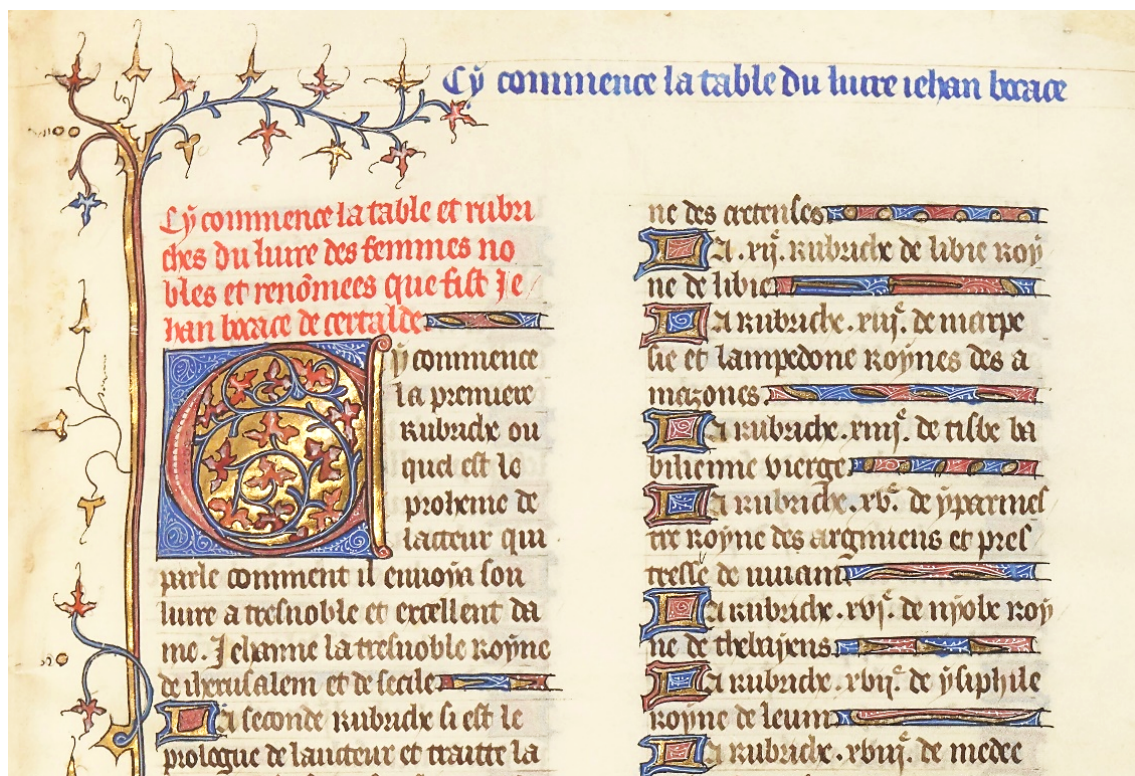 Cy commence la table du liure iehan bocace
Cy commence la table et rubri
ches du liure des femmes no
bles et renõmees que fist Je
han bocace de certalde
Cy commence
la premiere
rubriche ou
quel est le
proheme de
lacteur qui
parle comment il enuoia son
liure a tresnoble et excellent da
me. Jehanne la tresnoble royne
de iherusalem et de secile
La seconde rubriche si est le
prologue de lauteur et traitte la
ne des cretenses
La .xij.e rubriche de libie roy
ne de libie
La rubriche .xiij.e de marpe
sie et lampedone roynes des a
mazones
La rubriche .xiiij.e de tisbe ba
bilienne vierge
La rubriche .xv.e de yparmes
tre royne des argiuiens et pres
tresse de
La rubriche .xvj.e de nyobe roy
ne de thebayens
La rubriche .xvij.e de ysiphile
royne de
La rubriche .xviij.e de medee